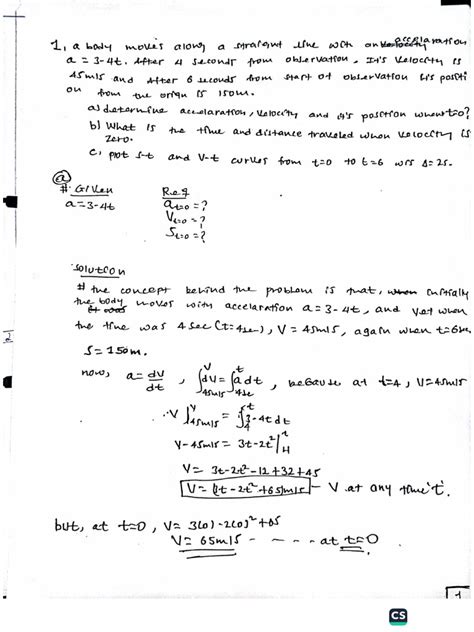 1, a body moves along a straight line with an acceleration
a = 3-4t. After 4 seconds from observation, It's velocity is
45m/s and After 6 seconds from start of observation its positi
on from the origin is 150m.
a) determine accelaration, velocity and it's position when t=0?
b) What is the time and distance traveled when velocity is
zero.
c, plot s-t and v-t curves from t=0 to t=6 Δ=2s.
(a)
# Given Req
a=3-4t a t=0 = ?
V t=0 = ?
S t=0 = ?
solution
# the concept behind the problem is that, initially
the body moves with accelaration a=3-4t, and yet when
the time was 4 sec (t=4sec), V=45m/s, again when t=6sec
S=150m.
now, a=dv/dt, ∫dv=∫adt, because at t=4, V=45m/s
V|45m/s = ∫3-4tdt
V-45m/s = 3t-2t²|
V= 3t-2t²-12+32+45
V= (3t-2t²+65)m/s - V at any time 't'.
but, at t=0, V= 3(0)-2(0)²+65
V= 65m/s - - - - at t=0
1
2
CS